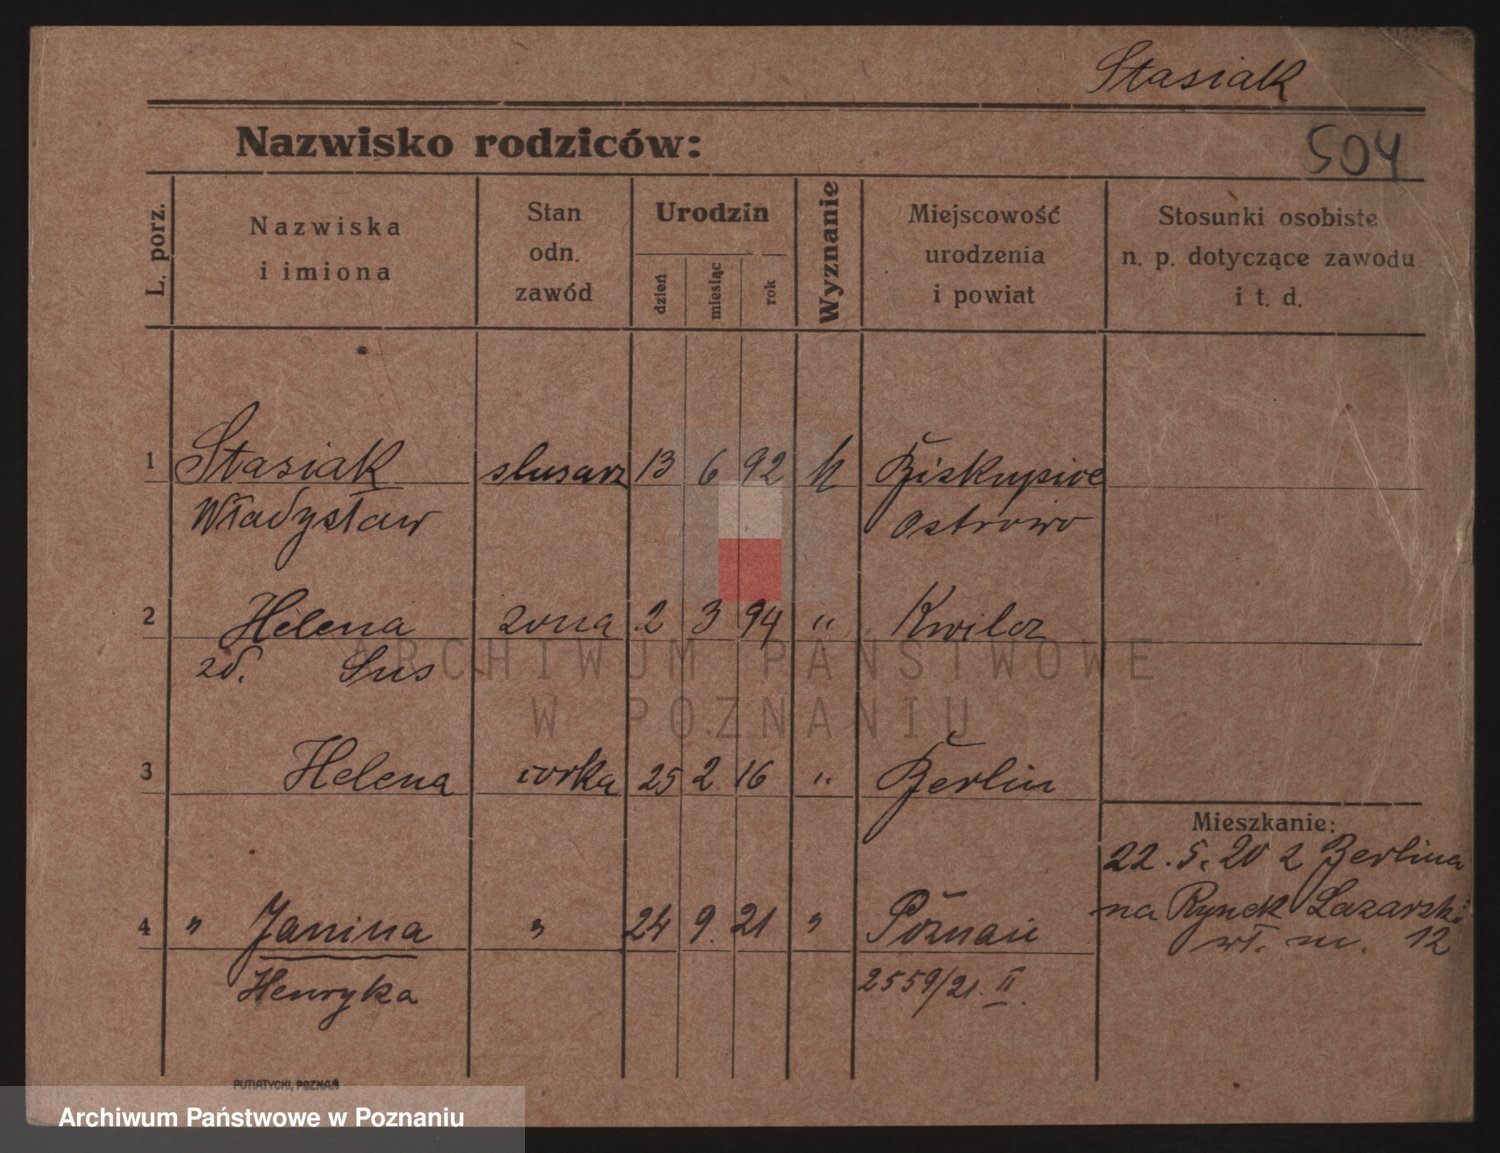 Stasiak
Nazwisko rodziców:
504
L. porz.
Nazwiska
i imiona
Stan
odn.
zawód
Urodzin
dzień
miesiąc
rok
Wyznanie
Miejscowość
urodzenia
i powiat
Stosunki osobiste
n. p. dotyczące zawodu
i t. d.
1 Stasiak slusarz 13 6 92 k Biskupice
Władysław Ostrowo
2 Helena zona 2 3 94 " Kwilcz
zd. Sus
3 Helena corka 25 2 16 " Berlin
Mieszkanie:
22. 5. 20 z Berlina
na Rynek Lazarski
wł. m. 12
4 " Janina " 24 9. 21 " Poznań
Henryka 2559/21. II.
PUTIATYCKI, POZNAŃ
ARCHIWUM PAŃSTWOWE
W POZNANIU
Archiwum Państwowe w Poznaniu